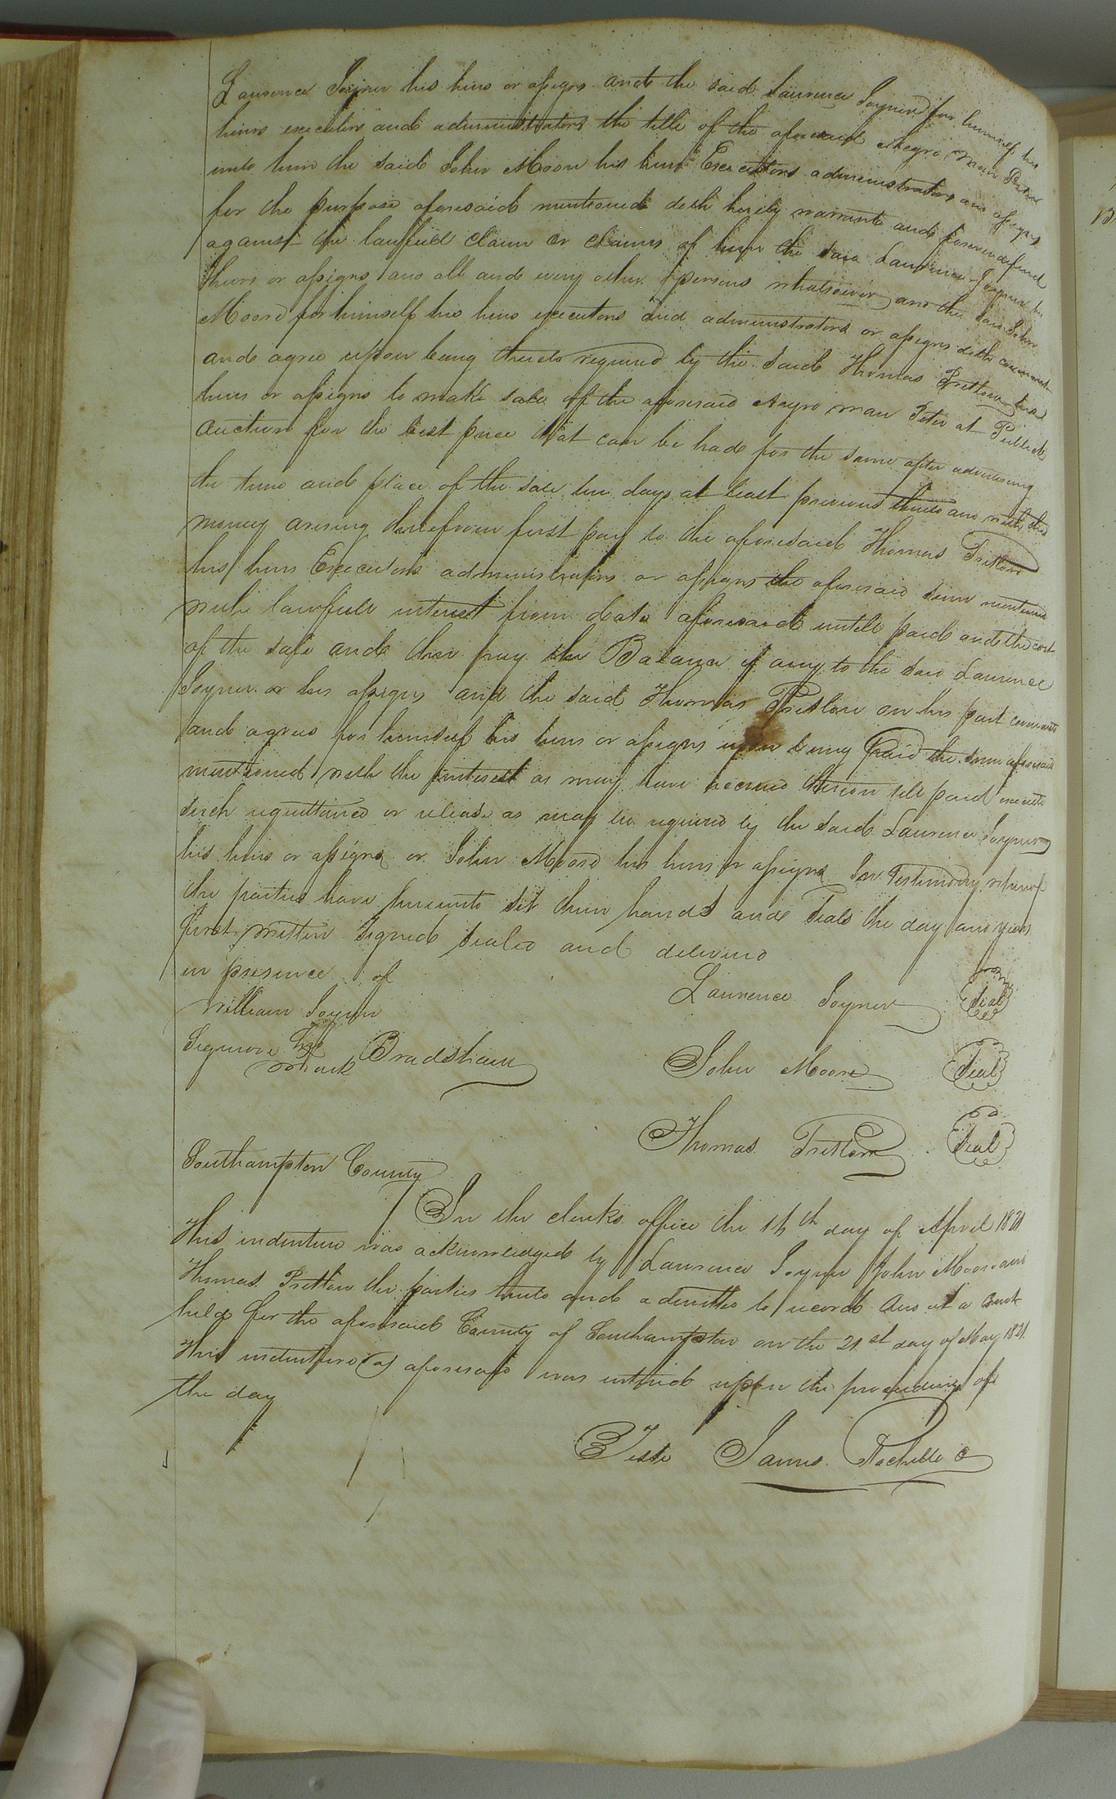 Laurence Joyner his heirs or assigns and the said Laurence Joyner for himself his
heirs executors and administrators the title of the aforesaid Negro man Peter
unto him the said John Moore his heirs Executors administrators and assigns
for the purpose aforesaid mentioned doth hereby warrant and forever defend
against the lawfull claim or claims of him the said Laurence Joyner his
heirs or assigns and all and every other persons whatsoever and the said John
Moore for himself his heirs executors and administrators or assigns doth covenant
and agree upon being thereto required by the said Thomas Pretlow his
heirs or assigns to make sale of the aforesaid Negro man Peter at Publick
auction for the best price that can be had for the same after advertising
the time and place of the sale ten days at least previous thereto and with the
money arising therefrom first pay to the aforesaid Thomas Pretlow
his heirs Executors administrators or assigns the aforesaid sum mentioned
with lawfull interest from date aforesaid untill paid and the cost
of the sale and then pay the Balance if any to the said Laurence
Joyner or his assigns and the said Thomas Pretlow on his part covenants
and agrees for himself his heirs or assigns upon being paid the sum aforesaid
mentioned with the interest as may have accrued thereon till paid execute
such acquittance or release as may be required by the said Laurence Joyner
his heirs or assigns or John Moore his heirs or assigns In Testimony whereof
the parties have hereunto set their hands and seals the day and year
first written Signed sealed and delivered
in presence of
William Joyner
Laurence Joyner Seal
his
Bradshaw
mark
John Moore Seal
Thomas Pretlow Seal
Southampton County
In the clerks office the 16th day of April 1821
This indenture was acknowledged by Laurence Joyner John Moore and
Thomas Pretlow the parties thereto and admitted to record And at a Court
held for the aforesaid County of Southampton on the 21st day of May 1821
This indenture as aforesaid was entered upon the proceedings of
the day
Teste James Rochelle C